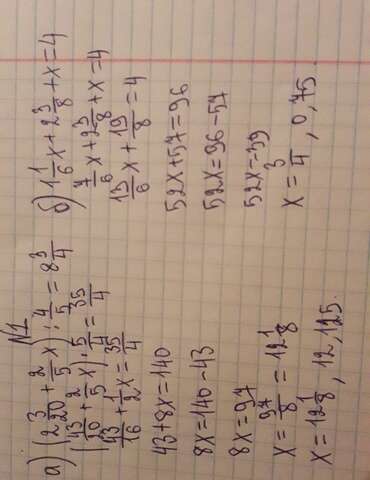 №1
а) (2 3/20 + 2/5 x) : 4/5 = 8 3/4
(43/20 + 2/5 x) · 5/4 = 35/4
43/16 + 1/2 x = 35/4
43+8x=140
8x=140-43
8x=97
x = 97/8 = 12 1/8
x = 12 1/8 , 12,125.
б) 1 1/6 x + 2 3/8 + x = 4
7/6 x + 2 3/8 + x = 4
13/6 x + 19/8 = 4
52x+57=96
52x=96-57
52x=39
x = 3/4 , 0,75.